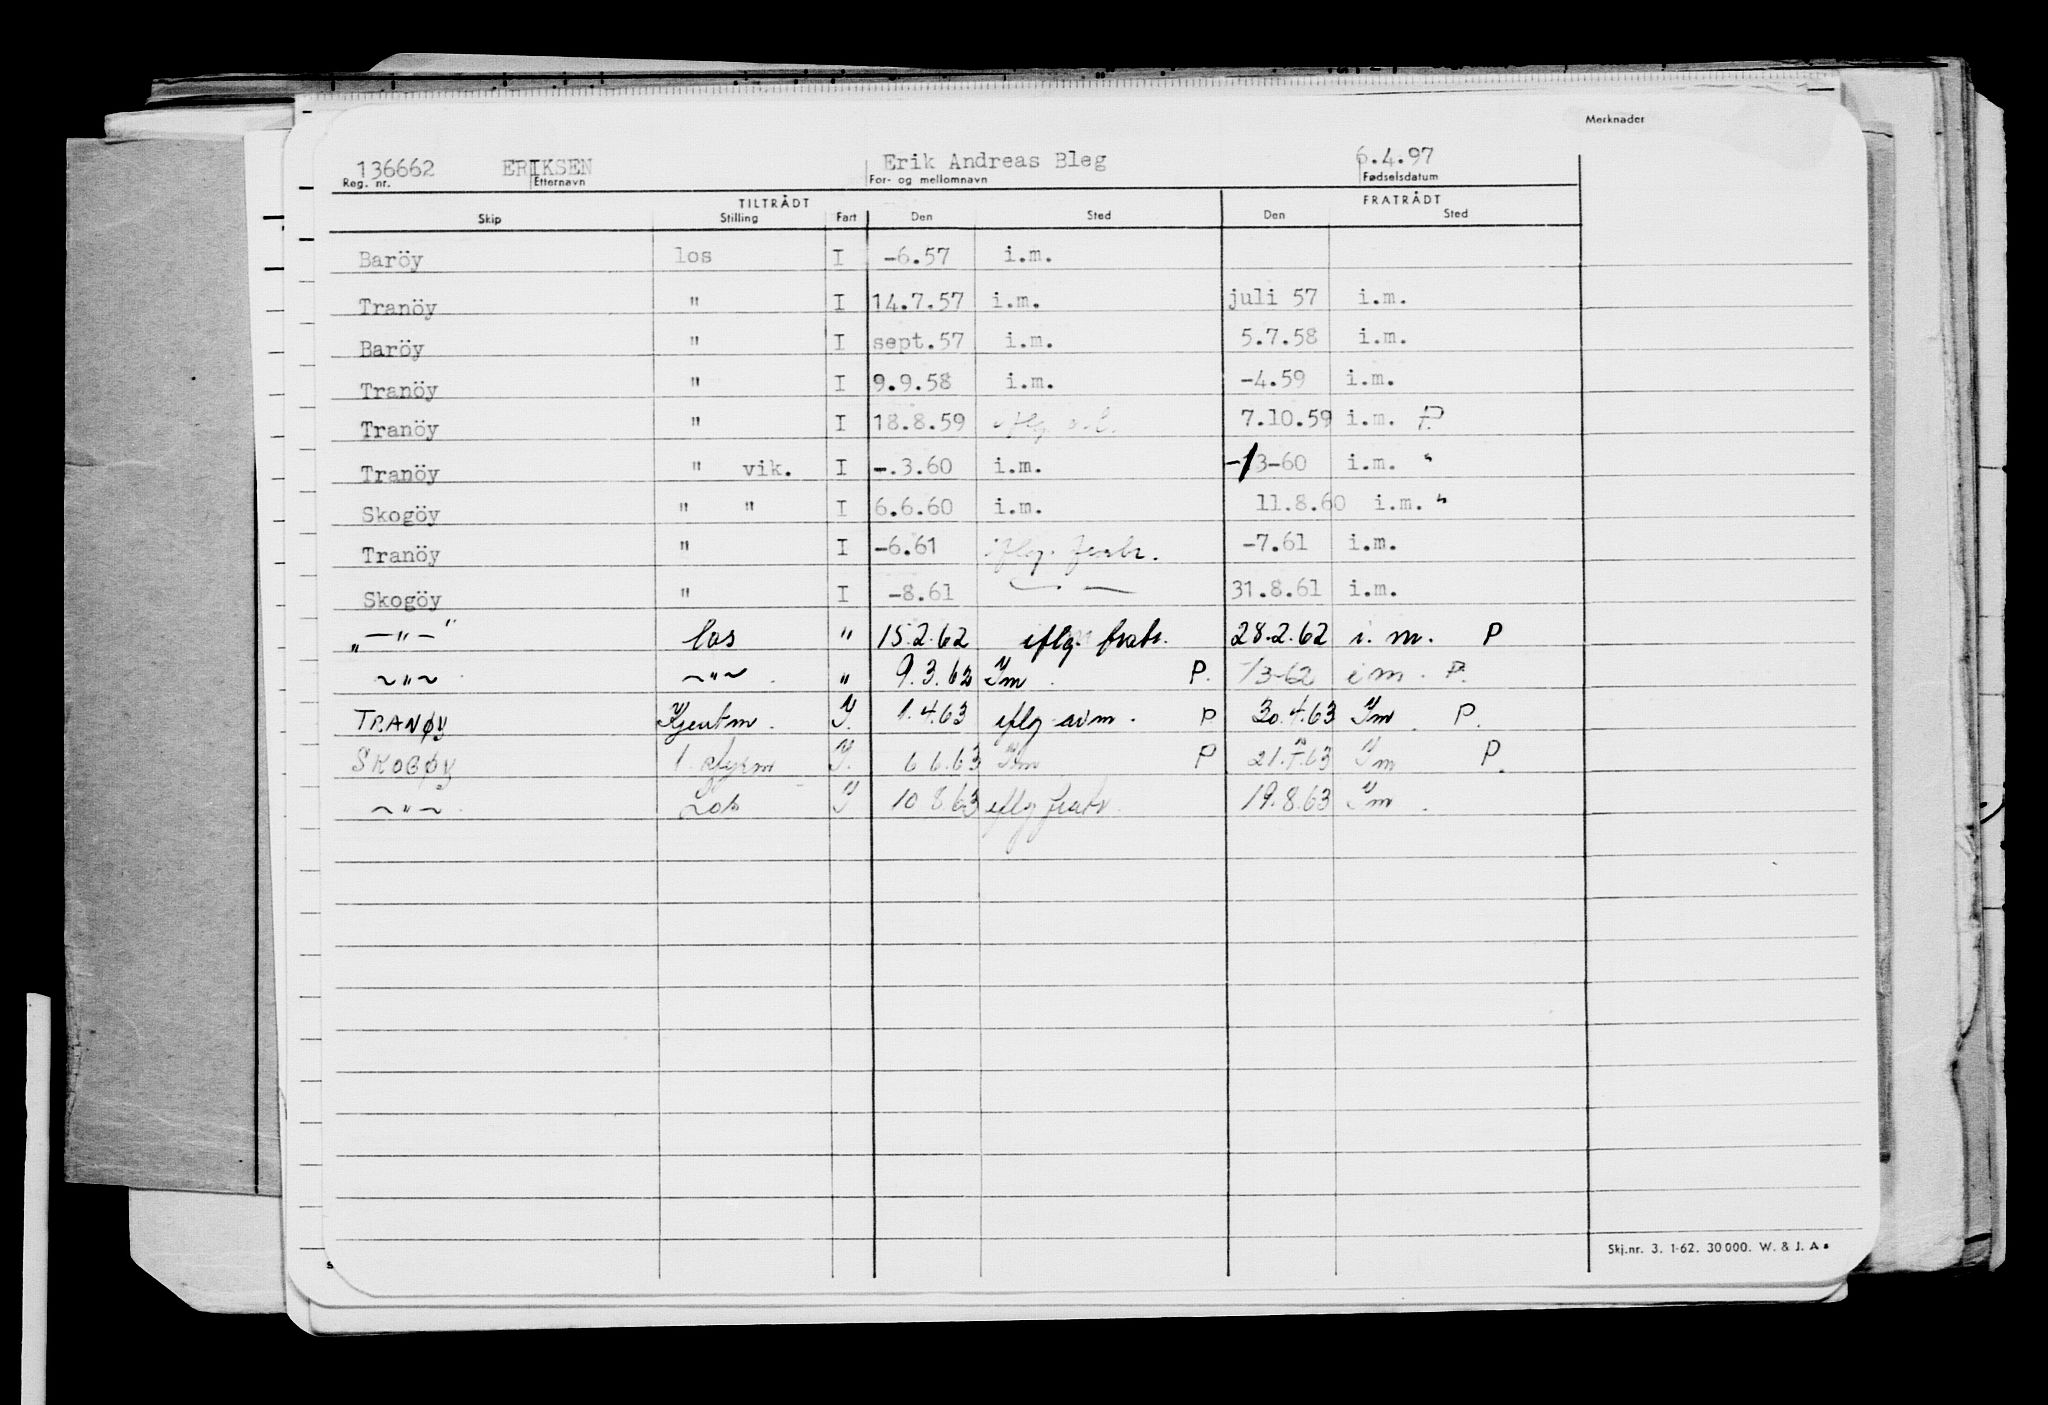 Merknader
136662 ERIKSEN Erik Andreas Bleg 6.4.97
Reg. nr. Etternavn For- og mellomnavn Fødselsdatum
TILTRÅDT FRATRÅDT
Skip Stilling Fart Den Sted Den Sted
Baröy los I -6.57 i.m.
Tranöy " I 14.7.57 i.m. juli 57 i.m.
Baröy " I sept.57 i.m. 5.7.58 i.m.
Tranöy " I 9.9.58 i.m. -4.59 i.m.
Tranöy " I 18.8.59 iflg. 7.10.59 i.m. P
Tranöy " vik. I -.3.60 i.m. -/3-60 i.m. "
Skogöy " " I 6.6.60 i.m. 11.8.60 i.m. "
Tranöy " I -6.61 iflg. fratr. -7.61 i.m.
Skogöy " I -8.61 — — 31.8.61 i.m.
„—"—" los " 15.2.62 iflg. fratr. 28.2.62 i.m. P
~"~ ~"~ " 9.3.62 Im. P. /3-62 i m. P.
TRANØY Kjentm. I. 1.4.63 iflg avm. P 30.4.63 Im. P.
SKOGØY 1. styrm I. 6 6.63 Im P 21.7.63 Im P.
~"~ Los I 10 8.63 iflg fratr. 19.8.63 Im.
Skj.nr. 3. 1-62. 30 000. W. & J. A.